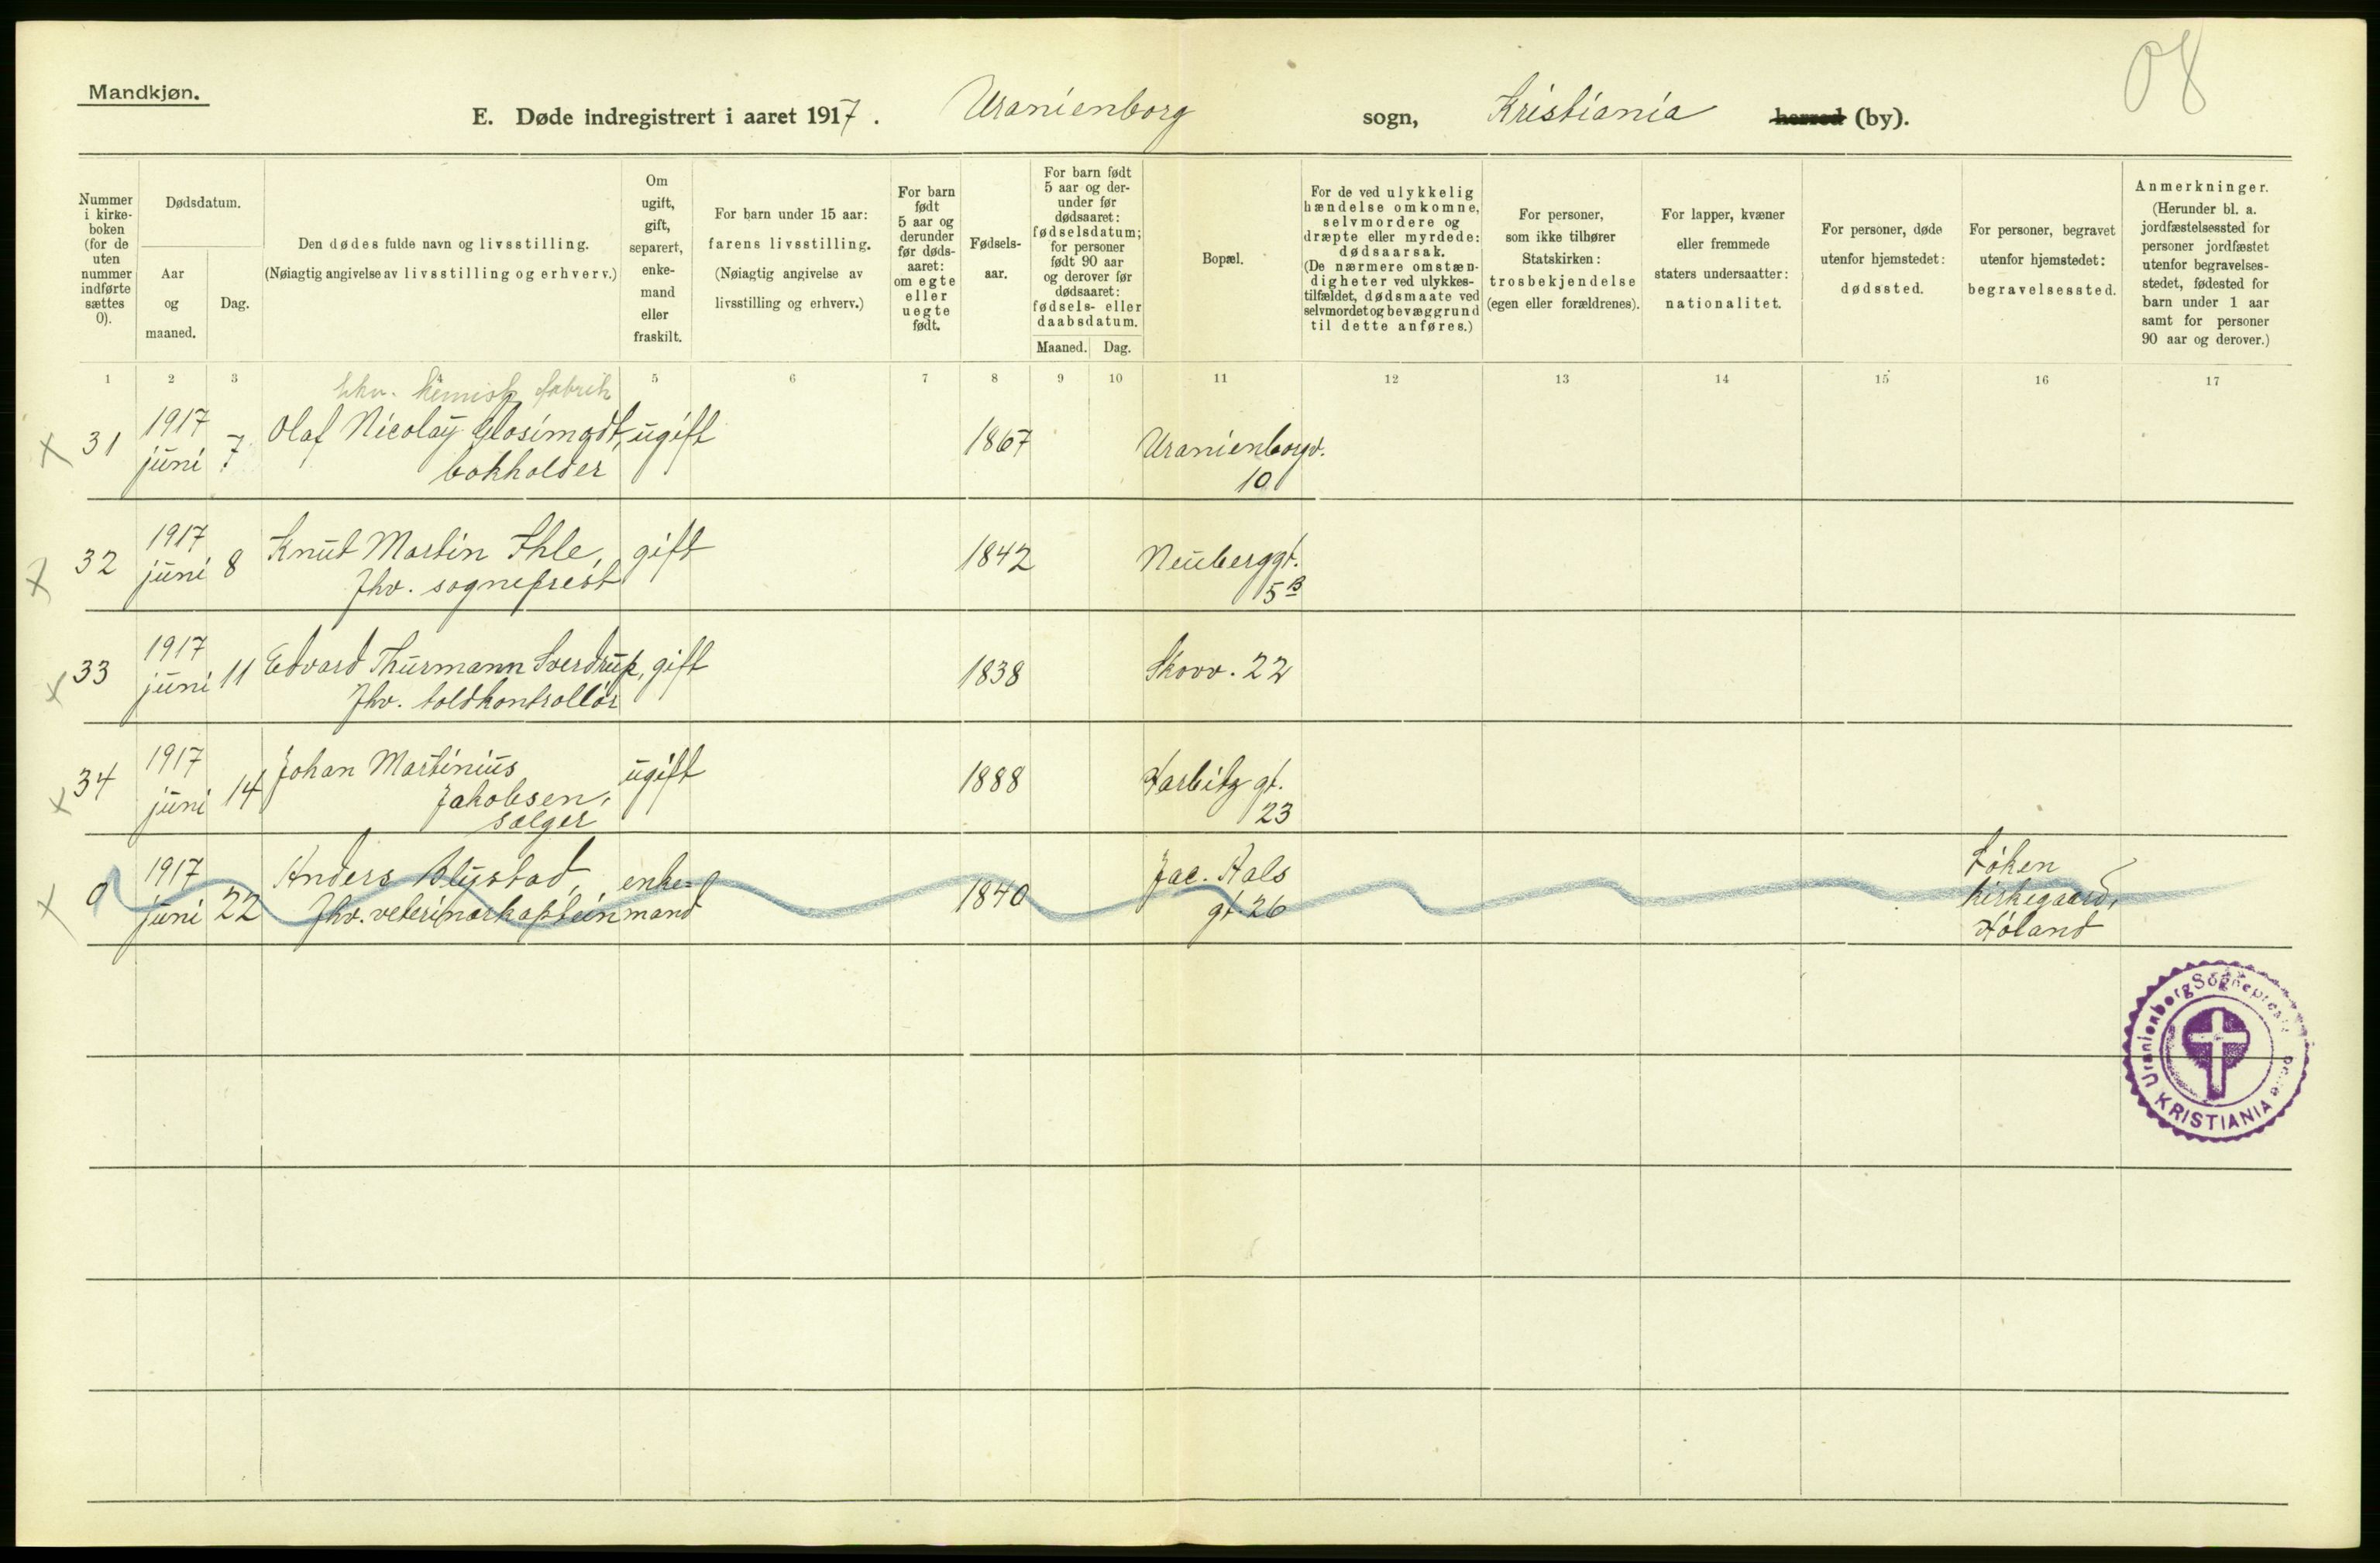 Mandkjøn.
08
E. Døde indregistrert i aaret 1917. Uranienborg sogn, Kristiania herred (by).
Nummer i kirke-boken (for de uten nummer indførte sættes 0).
Dødsdatum.
Aar og maaned.
Dag.
Den dødes fulde navn og livsstilling.
(Nøiagtig angivelse av livsstilling og erhverv.)
Om ugift, gift, separert, enke-mand eller fraskilt.
For barn under 15 aar:
farens livsstilling.
(Nøiagtig angivelse av livsstilling og erhverv.)
For barn født 5 aar og derunder før døds-aaret: om egte eller uegte født.
Fødsels-aar.
For barn født 5 aar og der-under før dødsaaret: fødselsdatum; for personer født 90 aar og derover før dødsaaret: fødsels- eller daabsdatum.
Maaned. Dag.
Bopæl.
For de ved ulykkelig hændelse omkomne, selvmordere og dræpte eller myrdede: dødsaarsak.
(De nærmere omstæn-digheter ved ulykkes-tilfældet, dødsmaate ved selvmordet og bevæggrund til dette anføres.)
For personer, som ikke tilhører Statskirken: trosbekjendelse (egen eller forældrenes).
For lapper, kvæner eller fremmede staters undersaatter: nationalitet.
For personer, døde utenfor hjemstedet: dødssted.
For personer, begravet utenfor hjemstedet: begravelsessted.
Anmerkninger.
(Herunder bl. a. jordfæstelsessted for personer jordfæstet utenfor begravelses-stedet, fødested for barn under 1 aar samt for personer 90 aar og derover.)
1 2 3 4 5 6 7 8 9 10 11 12 13 14 15 16 17
kemisk fabrik
x 31 1917 juni 7 Olaf Nicolay Glosimodt, ugift 1867 Uranienborgv.
bokholder 10
x 32 1917 juni 8 Knut Martin Ihle, gift 1842 Neuberggt.
Fhv. sogneprest 5 B
x 33 1917 juni 11 Edvard Thurmann Sverdrup, gift 1838 Skovv. 22
Fhv. toldkontrollør
x 34 1917 juni 14 Johan Martinius ugift 1888 Harbitz gt.
Jakobsen, 23
sælger
x 0 1917 juni 22 Anders Blystad, enke- 1840 Jac. Aals Løken
Fhv. veterinærkaptein mand gt. 26 kirkegaard,
Høland
Uranienborg Sogneprest
KRISTIANIA